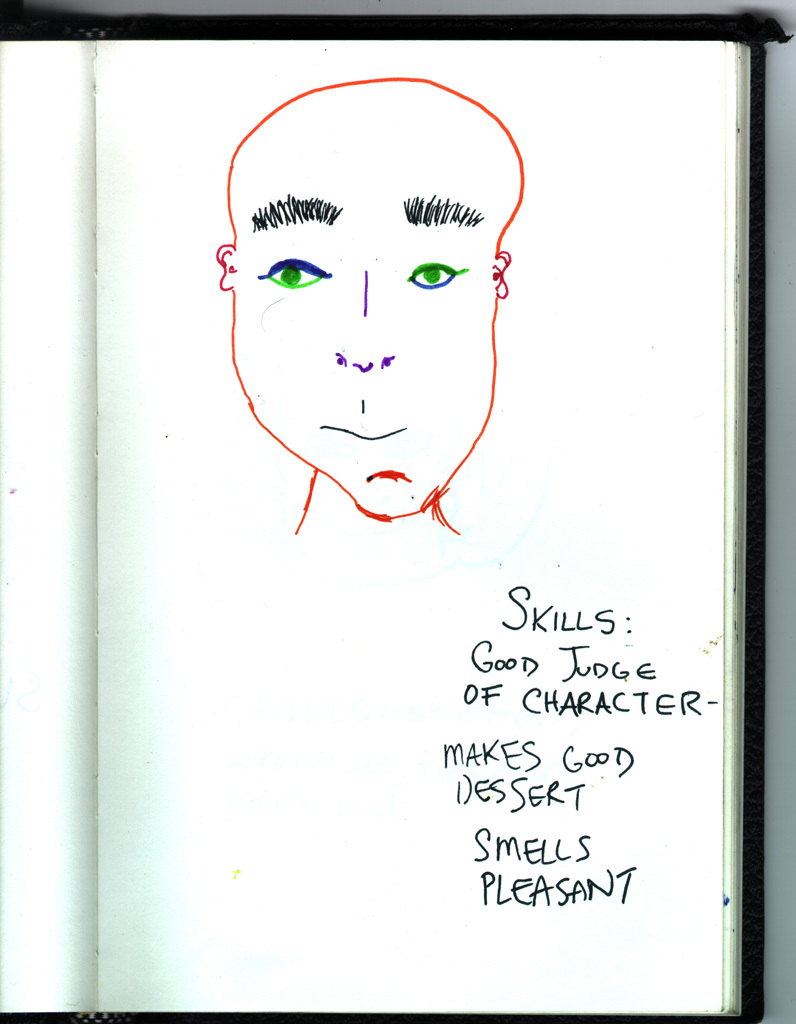 SKILLS:
GOOD JUDGE
OF CHARACTER-
MAKES GOOD
DESSERT
SMELLS
PLEASANT